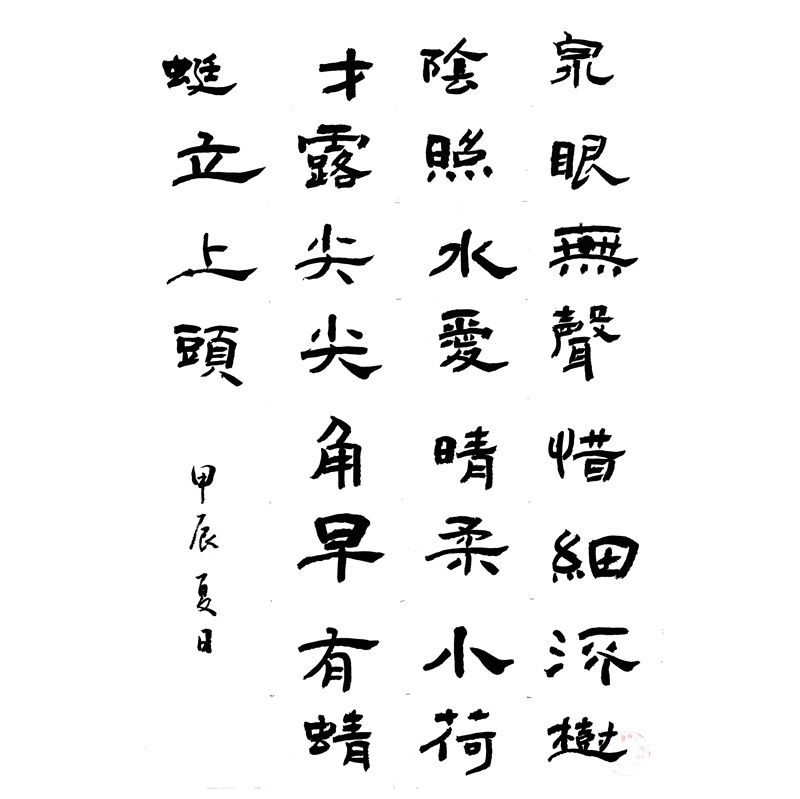 泉眼無聲惜細流樹
陰照水愛晴柔小荷
才露尖尖角早有蜻
蜓立上頭
甲辰夏日